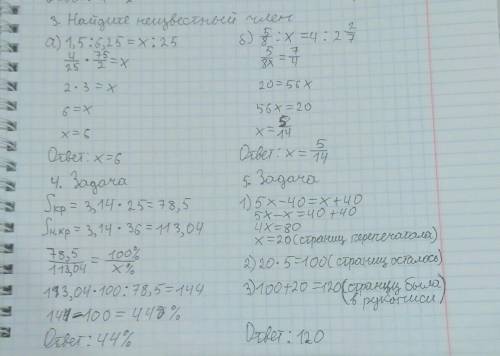 3. Найдите неизвестный член
а) 1,5 : 6,25 = x : 25
4/25 · 75/2 = x
2 · 3 = x
6 = x
x = 6
Ответ: x = 6
б) 5/8 : x = 4 : 2 2/7
5/8x = 7/4
20 = 56x
56x = 20
x = 5/14
Ответ: x = 5/14
4. Задача
Sкр = 3,14 · 25 = 78,5
Sн.кр = 3,14 · 36 = 113,04
78,5/113,04 = 100%/x%
113,04 · 100 : 78,5 = 144
144 - 100 = 44%
Ответ: 44%
5. Задача
1) 5x - 40 = x + 40
5x - x = 40 + 40
4x = 80
x = 20 (страниц перепечатала)
2) 20 · 5 = 100 (страниц осталось)
3) 100 + 20 = 120 (страниц была
в рукописи
Ответ: 120